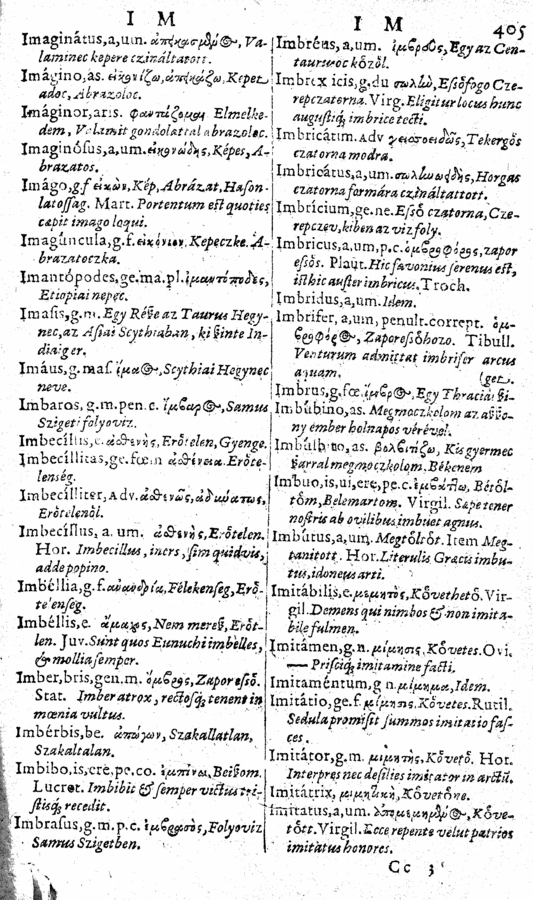 I M
Imaginátus, a, um. ἀπεικασμένος, Va-
laminec kepere czináltatott.
Imágino, as. εἰκονίζω, ἀπεικάζω, Kepet
adoc, Abrazoloc.
Imáginor, aris. φαντάζομαι Elmelke-
dem, Valamit gondolattal abrazoloc.
Imaginósus, a, um. εἰκονώδης, Képes, A-
brazatos.
Imágo, g. f εἰκὼν, Kép, Abrázat, Hason-
latossag. Mart. Portentum est quoties
cœpit imago loqui.
Imagúncula, g. f. εἰκόνιον, Kepeczke. A-
brazatoczka.
Imantópodes, ge. ma. pl. ἱμαντόποδες,
Etiopiai nepec.
Imasis, g. m. Egy Réße az Taurus Hegy-
nec, az Asiai Scythiaban, ki ßinte In-
diaig er.
Imáus, g. mas. ἴμαος, Scythiai Hegynec
neve.
Imbaros, g. m. pen. c. ἴμβαρος, Samus
Szigeti folyoviz.
Imbecíllis, e. ἀσθενὴς, Erőtelen, Gyenge.
Imbecíllitas, ge. fœm ἀσθένεια. Erőte-
lenség.
Imbecílliter, Adv. ἀσθενῶς, ἀδυνάτως,
Erőtelenől.
Imbecíllus, a, um. ἀσθενὴς, Erőtelen.
Hor. Imbecillus, iners, sim quidvis,
adde popino.
Imbéllia, g. f. ἀνανδρία, Félekenseg, Erő-
telenseg.
Imbéllis, e. ἄμαχος, Nem mereß, Erőt-
len. Juv. Sunt quos Eunuchi imbelles,
& mollia semper.
Imber, bris, gen. m. ὄμβρος, Zaporessó.
Stat. Imber atrox, rectosq; tenent in
mœnia vultus.
Imbérbis, be. ἀπώγων, Szakallatlan,
Szakaltalan.
Imbibo, is, ere, pe. co. ἐμπίνω, Beißom.
Lucret. Imbibit & semper victus tri-
stisq; recedit.
Imbrasus, g. m. p. c. ἴμβρασος, Folyoviz
Samus Szigetben.
I M 405
Imbréus, a, um. ἰμβρεὺς, Egy az Cen-
taurusoc kőzől.
Imbrex icis, g. du σωλὼν, Essőfogo Cze-
repczatorna. Virg. Eligitur locus hunc
augustiq; imbrice tecti.
Imbricátim. Adv γεισσοειδῶς, Tekergős
czatorna modra.
Imbricátus, a, um. σωλωνώδης, Horgas
czatorna formára czináltattott.
Imbrícium, ge. ne. Essó czatorna, Cze-
repczev, kiben az viz foly.
Imbricus, a, um, p. c. ὀμβροφόρος, zapor
essős. Plaut. Hic favonius serenus est,
isthic auster imbricus. Troch.
Imbridus, a, um. Idem.
Imbrifer, a, um, penult. corrept. ὀμ-
βροφόρος, Zaporessőhozo. Tibull.
Venturum admittat imbrifer arcus
aquam. (get.
Imbrus, g. fœ. ἴμβρος, Egy Thraciai ßi-
Imbúbino, as. Megmoczkolom az aßßo-
ny ember holnapos vérével.
Imbúlbito, as. βολβιτίζω, Kis gyermec
ßarral megmoczkolom. Békcnem
Imbuo, is, ui, ere, pe. c. ἐμβάπτω, Bétől-
tőm, Belemartom. Virgil. Sape tener
nostris ab ovilibus imbuet agnus.
Imbútus, a, um. Megtőltőt. Item Meg-
tanitott. Hor. Literulis Gracis imbu-
tus, idoneus arti.
Imitábilis, e. μιμητὸς, Kővethető. Vir-
gil. Demens qui nimbos & non imita-
bile fulmen.
Imitámen, g. n. μίμησις, Kővetes. Ovi.
— Priscisq; imitamine facti.
Imitaméntum, g n. μίμημα, Idem.
Imitátio, ge. f. μίμησις, Kővetes. Rutil.
Sedula promisit summos imitatio fas-
ces.
Imitátor, g. m. μιμητὴς, Kővető. Hor.
Interpres nec desilies imitator in arctũ.
Imitátrix, μιμητικὴ, Kővetőne.
Imitatus, a, um. ἀπομεμιμημένος, Kőve-
tőtt. Virgil. Ecce repente velut patrios
imitatus honores.
Cc 3